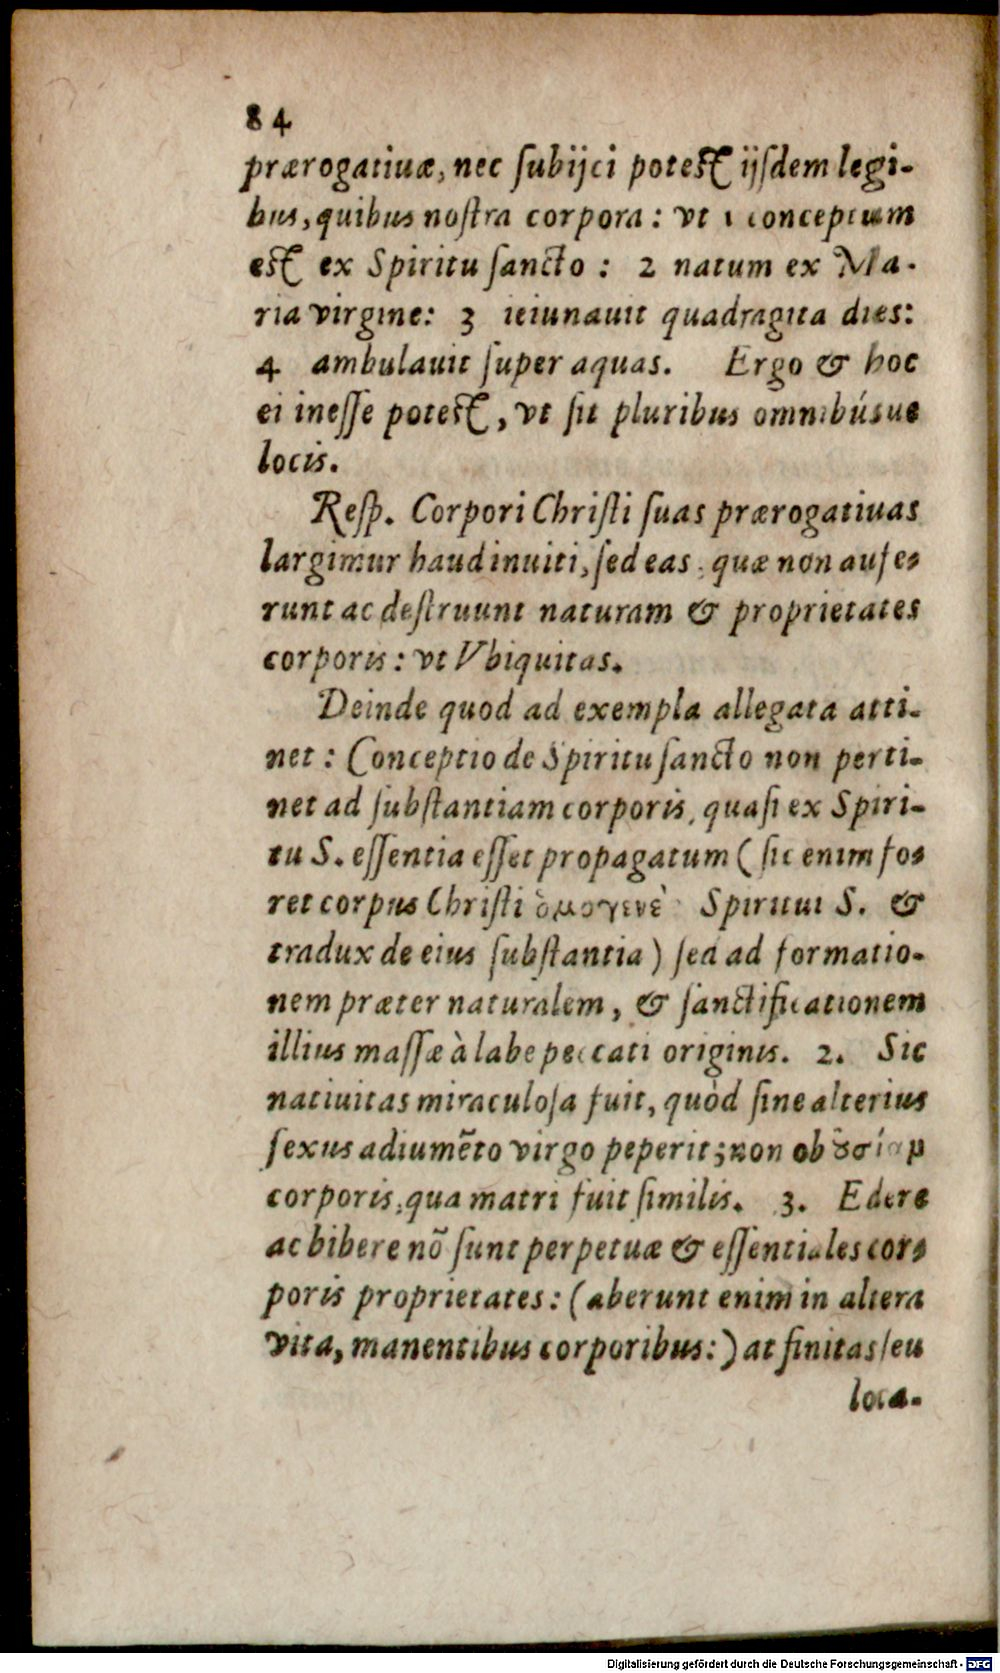 84
prærogatiuæ, nec ſubijci poteſt ijſdem legi-
bus, quibus noſtra corpora: vt 1 conceptum
eſt ex Spiritu ſancto: 2 natum ex Ma-
ria virgine: 3 ieiunauit quadragita dies:
4 ambulauit ſuper aquas. Ergo & hoc
ei ineſſe poteſt, vt ſit pluribus omnibúsue
locis.
Reſp. Corpori Chriſti ſuas prærogatiuas
largimur haud inuiti, ſed eas, quæ non aufe-
runt ac deſtruunt naturam & proprietates
corporis: vt Vbiquitas.
Deinde quod ad exempla allegata atti-
net: Conceptio de Spiritu ſancto non perti-
net ad ſubſtantiam corporis, quaſi ex Spiri-
tu S. eſſentia eſſet propagatum (ſic enim fo-
ret corpus Chriſti ὁμογενὲ Spiritui S. &
tradux de eius ſubſtantia) ſed ad formatio-
nem præter naturalem, & ſanctificationem
illius maſſæ à labe peccati originis. 2. Sic
natiuitas miraculoſa fuit, quòd ſine alterius
ſexus adiumēto virgo peperit; non ob ȣσίαμ
corporis, qua matri fuit ſimilis. 3. Edere
ac bibere nō ſunt perpetuæ & eſſentiales cor-
poris proprietates: (aberunt enim in altera
vita, manentibus corporibus:) at finitas ſeu
loca-
Digitalisierung gefördert durch die Deutsche Forschungsgemeinschaft - DFG